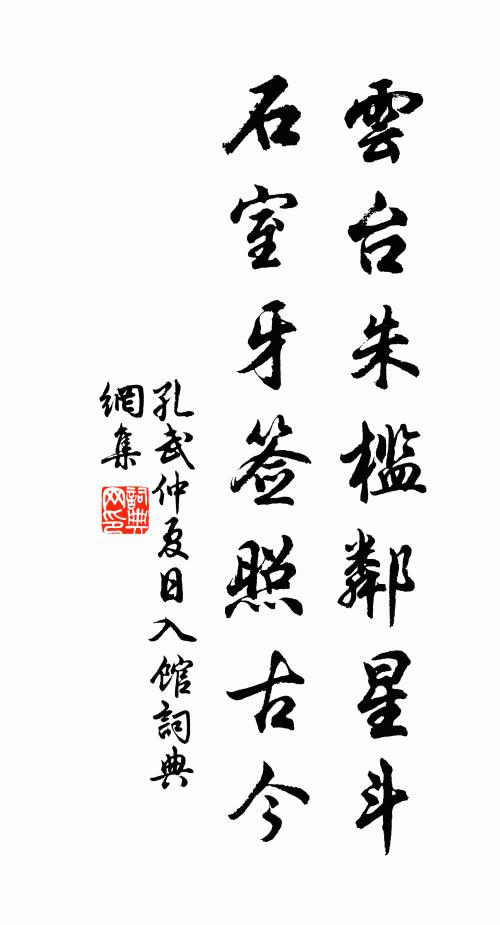 雲台朱檻鄰星斗
石室牙签照古今
孔武仲夏日入館詞典
網集
詞典
网印